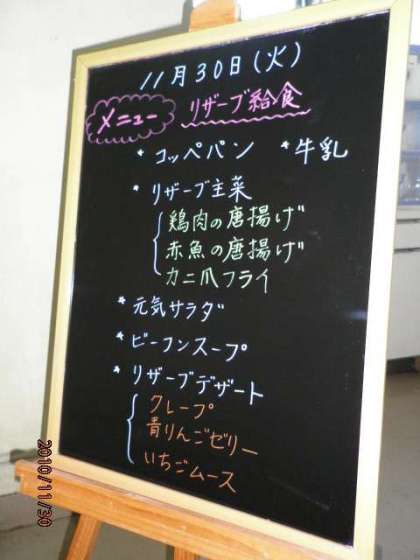 11月30日(火)
メニュー
リザーブ給食
* コッペパン * 牛乳
* リザーブ主菜
鶏肉の唐揚げ
赤魚の唐揚げ
カニ爪フライ
* 元気サラダ
* ビーフンスープ
* リザーブデザート
クレープ
青りんごゼリー
いちごムース
2010/11/30